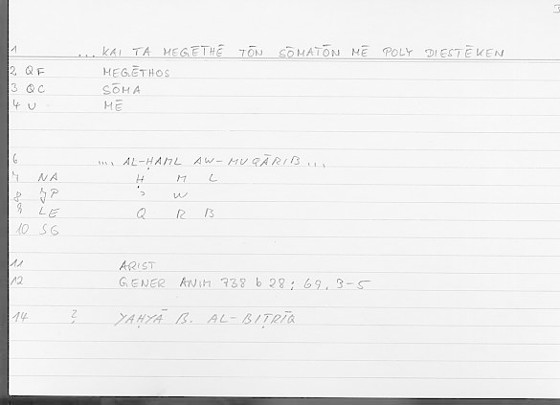 1 ... KAI TA MEGĒTHĒ TŌN SŌMATŌN MĒ POLY DIESTĒKEN
2 QF MEGĒTHOS
3 QC SŌMA
4 U MĒ
6 ... AL-ḤAML AW-MUQĀRIB ...
7 NA Ḥ M L
8 JP ʾ W
9 LE Q R B
10 SG
11 ARIST
12 GENER ANIM 738 b 28; 69, 3-5
14 ? YAḤYĀ B. AL-BIṬRĪQ